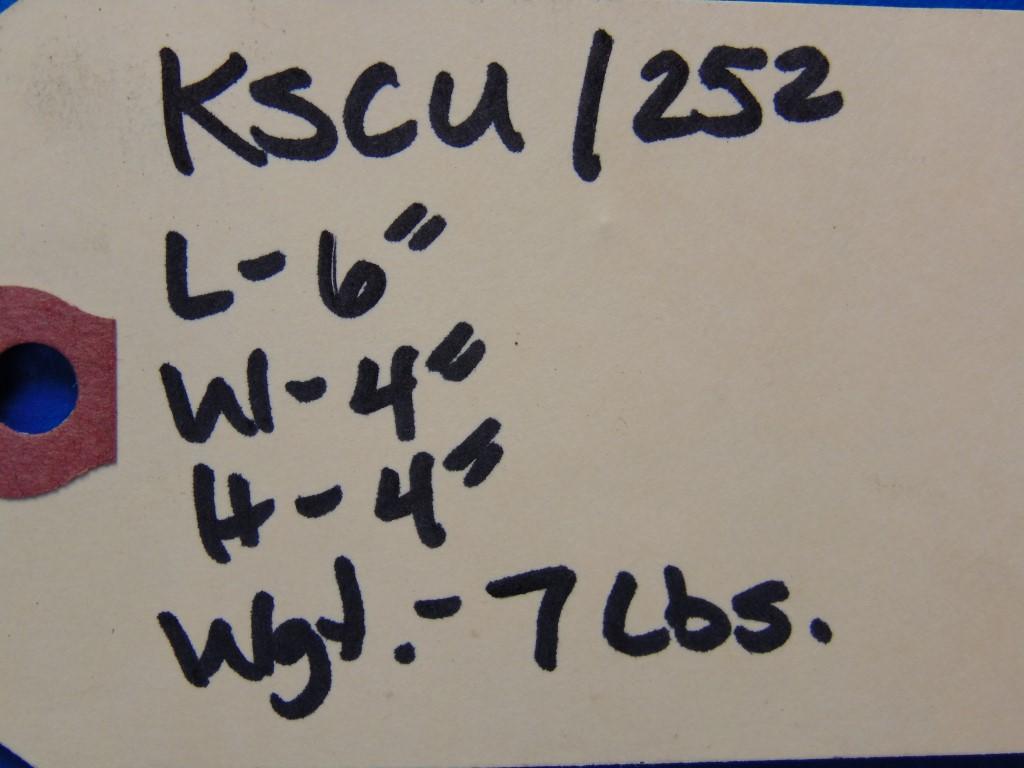 KSCU/252
L-6"
W-4"
H-4"
Wgt.-7Lbs.